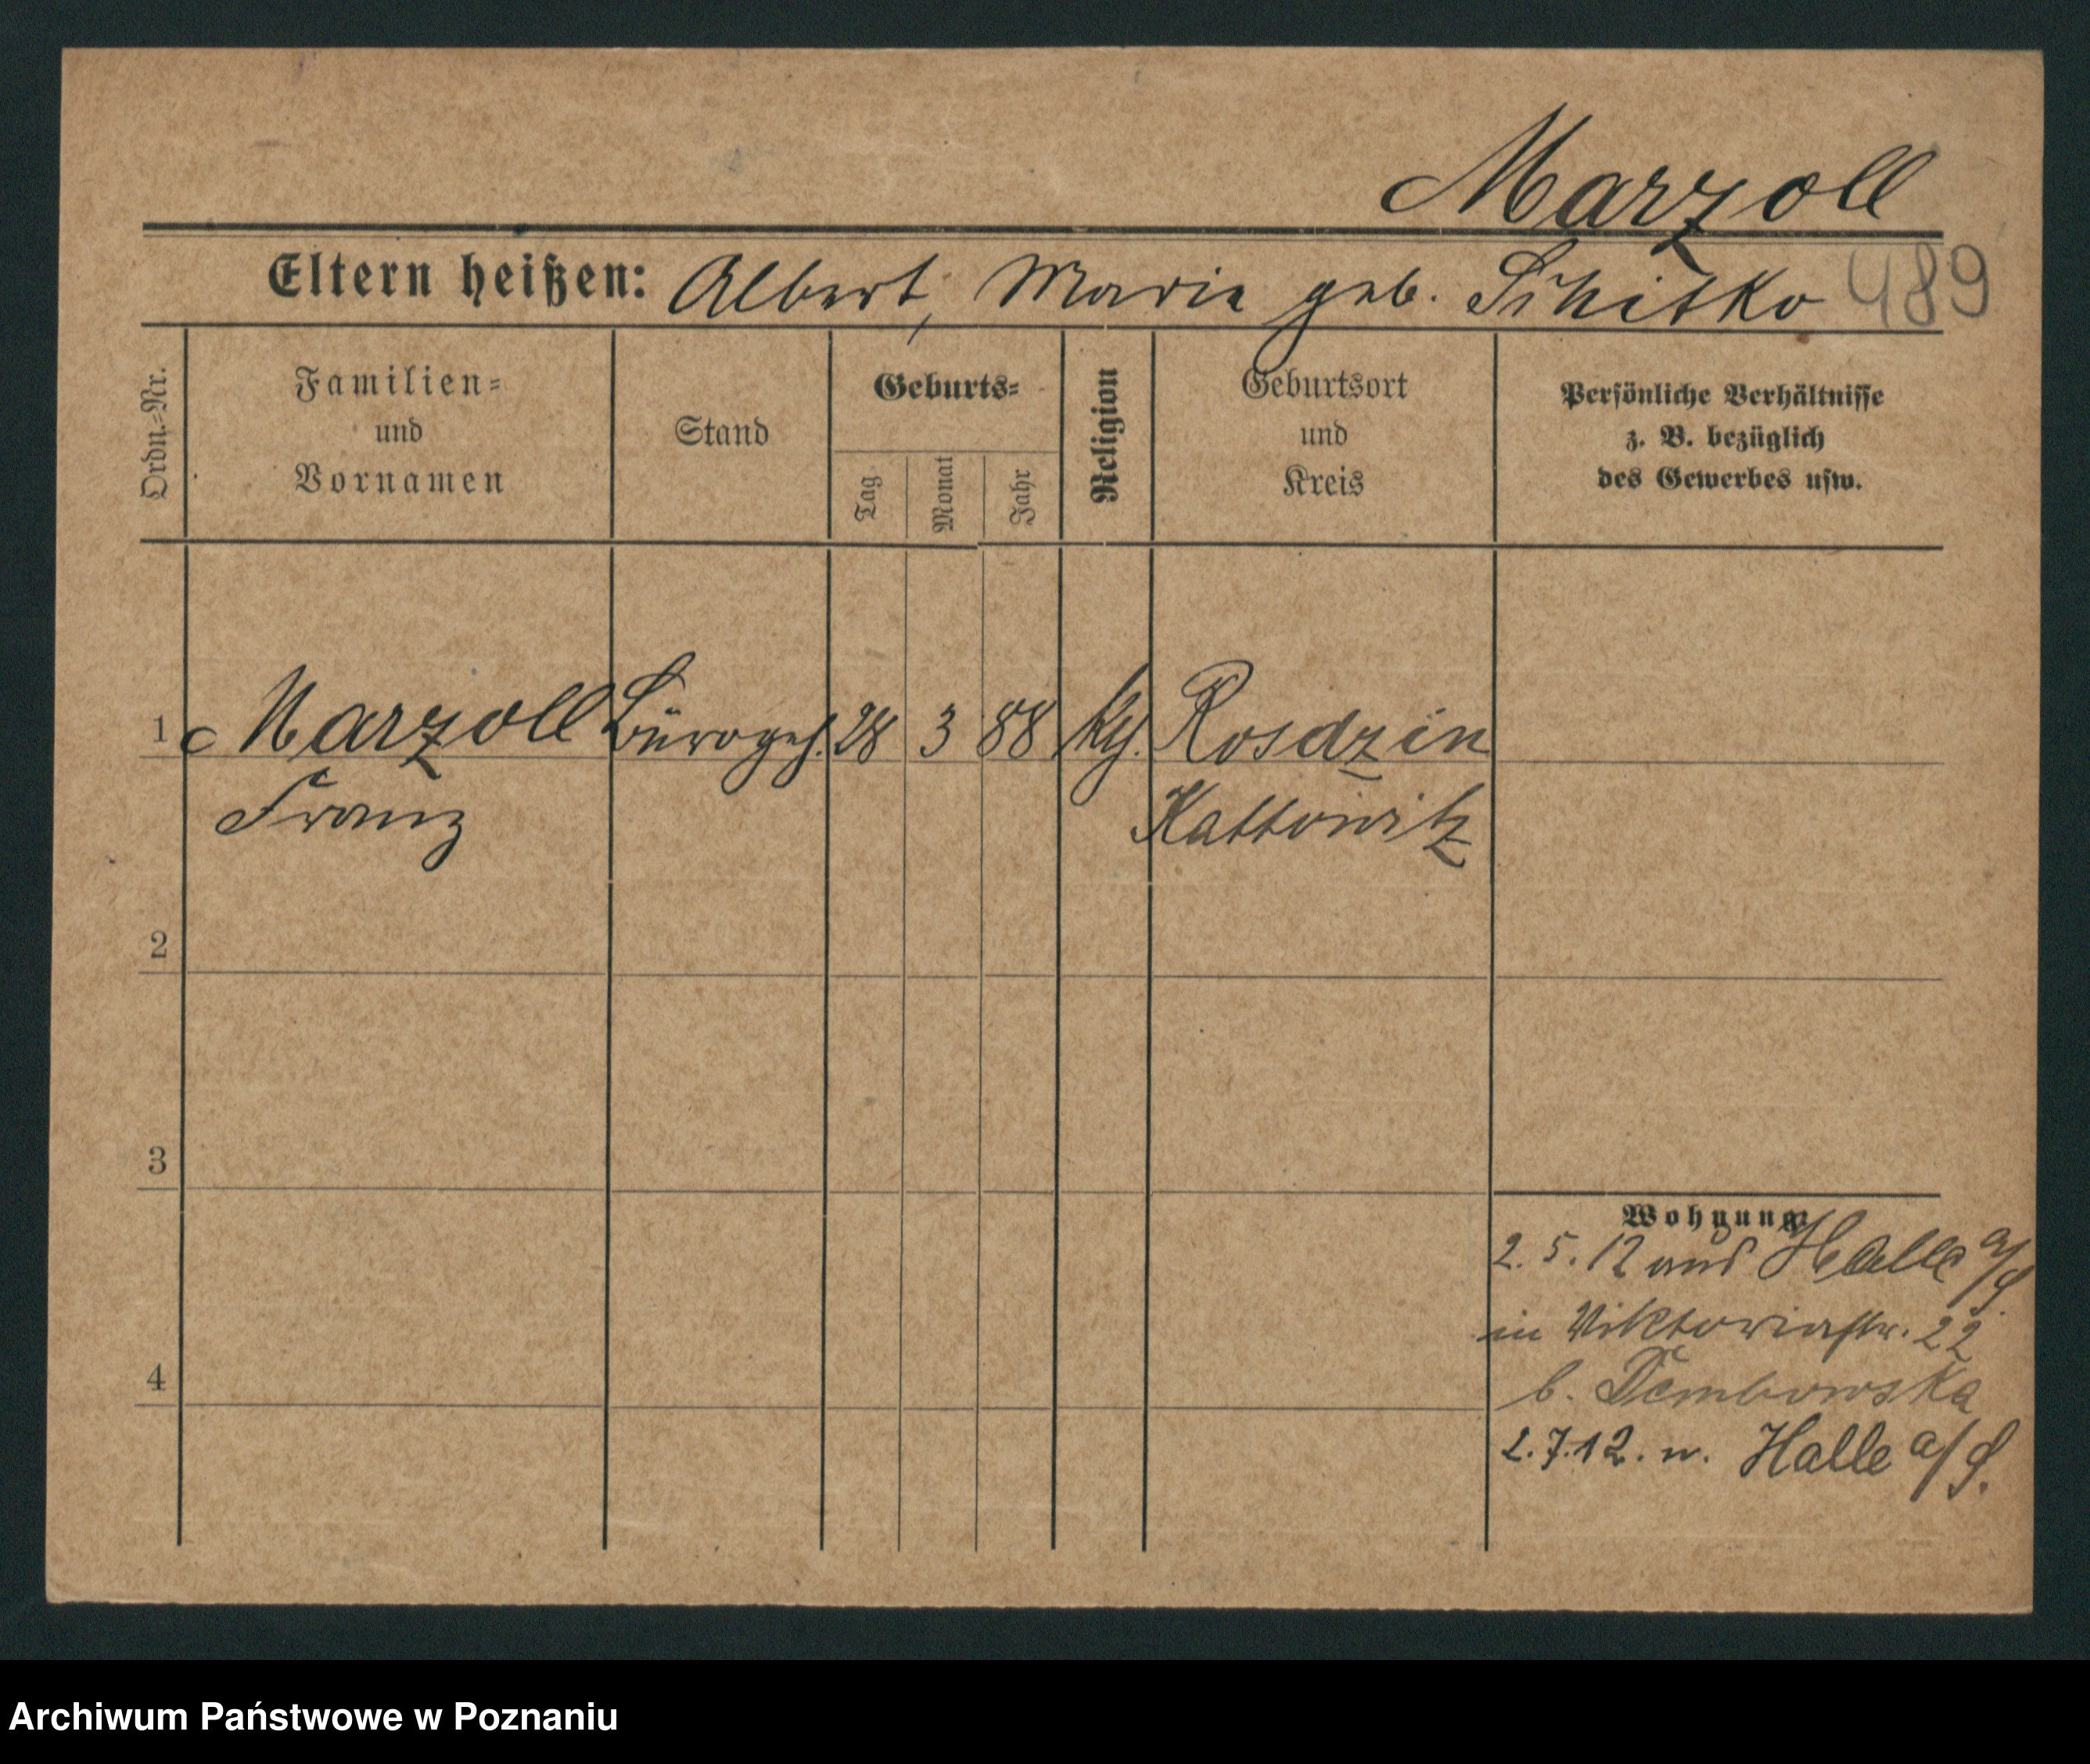 Marzoll
Eltern heißen: Albert, Marie geb. Schitko 489
Ordn.-Nr.
Familien-
und
Vornamen
Stand
Geburts-
Tag
Monat
Jahr
Religion
Geburtsort
und
Kreis
Persönliche Verhältnisse
z. B. bezüglich
des Gewerbes usw.
1 Marzoll Bürogeh. 28 3 88 Rosdzin
Franz Kattowitz
2
3
Wohnung
2. 5. 12 aus Halle a/S.
in Viktoriastr. 22
4
b. Dembowska
2. 7. 12. n. Halle a/S.
Archiwum Państwowe w Poznaniu